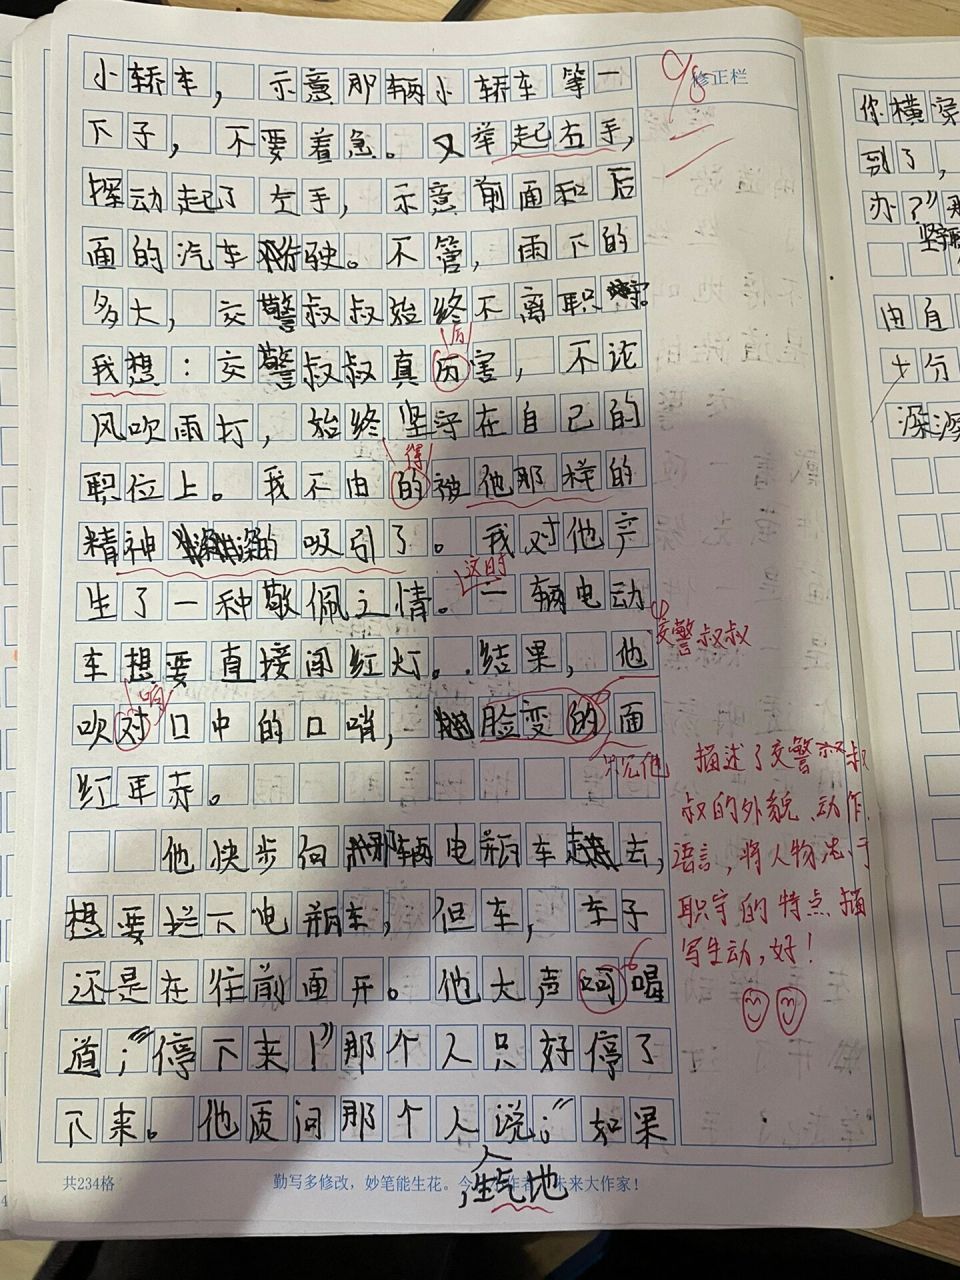 小轿车，示意那辆小轿车等一
下子，不要着急。又举起右手，
挥动起了左手，示意前面和后
面的汽车行驶。不管，雨下的
多大，交警叔叔始终不离职守。
我想：交警叔叔真历害，不论
厉
风吹雨打，始终坚守在自己的
职位上。我不由的被他那样的
得
精神深深的吸引了。我对他产
生了一种敬佩之情。一辆电动
这时
车想要直接闯红灯。结果，他
交警叔叔
吹对口中的口哨，脸变的面
响
只见他
红耳赤。
他快步向那辆电瓶车赶去，
想要拦下电瓶车，但车，车子
还是在往前面开。他大声呵喝
道；“停下来！”那个人只好停了
下来。他质问那个人说；“如果
生气地
修正栏
98
描述了交警叔
叔的外貌、动作、
语言，将人物忠于
职守的特点描
写生动，好！
共234格
勤写多修改，妙笔能生花。
未来大作家！
你横穿
到了，
办？”那
坚守
由自
十分
深深